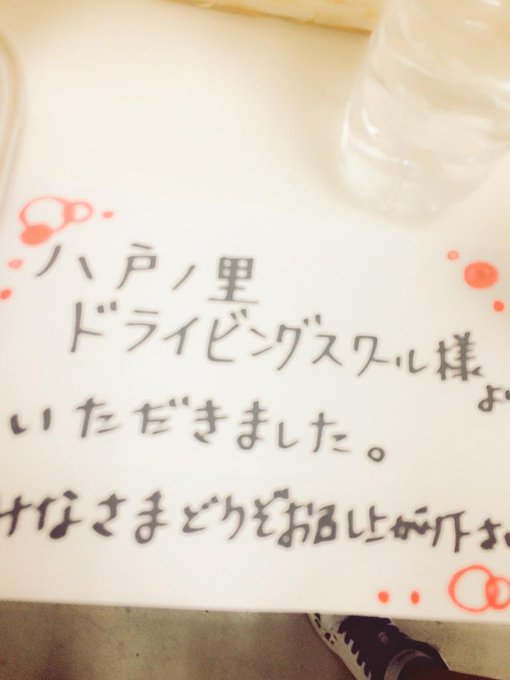 八戸ノ里
ドライビングスクール様
より
いただきました。
みなさまどうぞお召し上がり下さい